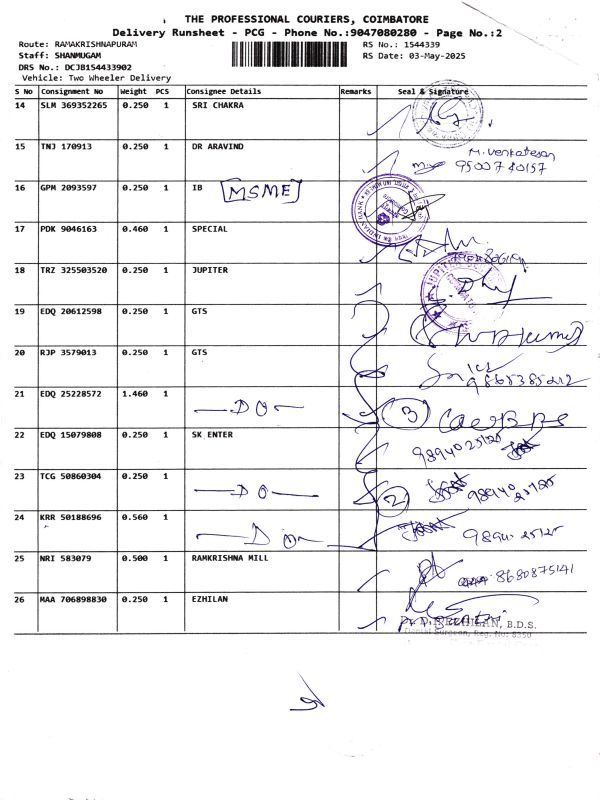 THE PROFESSIONAL COURIERS, COIMBATORE
Delivery Runsheet - PCG - Phone No.:9047080280 - Page No.:2
Route: RAMAKRISHNAPURAM
RS No.: 1544339
Staff: SHANMUGAM
RS Date: 03-May-2025
DRS No.: DCJB1S4433902
Vehicle: Two Wheeler Delivery
S No Consignment No Weight PCS Consignee Details Remarks Seal & Signature
14 SLM 369352265 0.250 1 SRI CHAKRA
15 TNJ 170913 0.250 1 DR ARAVIND M. Venkatesan
9500740157
16 GPM 2093597 0.250 1 IB MSME
INDIAN BANK
17 PDK 9046163 0.460 1 SPECIAL
18 TRZ 325503520 0.250 1 JUPITER
JUPITER
19 EDQ 20612598 0.250 1 GTS
20 RJP 3579013 0.250 1 GTS
9865385212
21 EDQ 25228572 1.460 1 —DO— 3
22 EDQ 15079808 0.250 1 SK ENTER 9894025125
23 TCG 50860304 0.250 1 —DO— 2 9894025125
24 KRR 50188696 0.560 1 —DO— 9894025125
25 NRI 583079 0.500 1 RAMKRISHNA MILL 8680875141
26 MAA 706898830 0.250 1 EZHILAN
EZHILAN, B.D.S.
Dental Surgeon, Reg. No: 8350